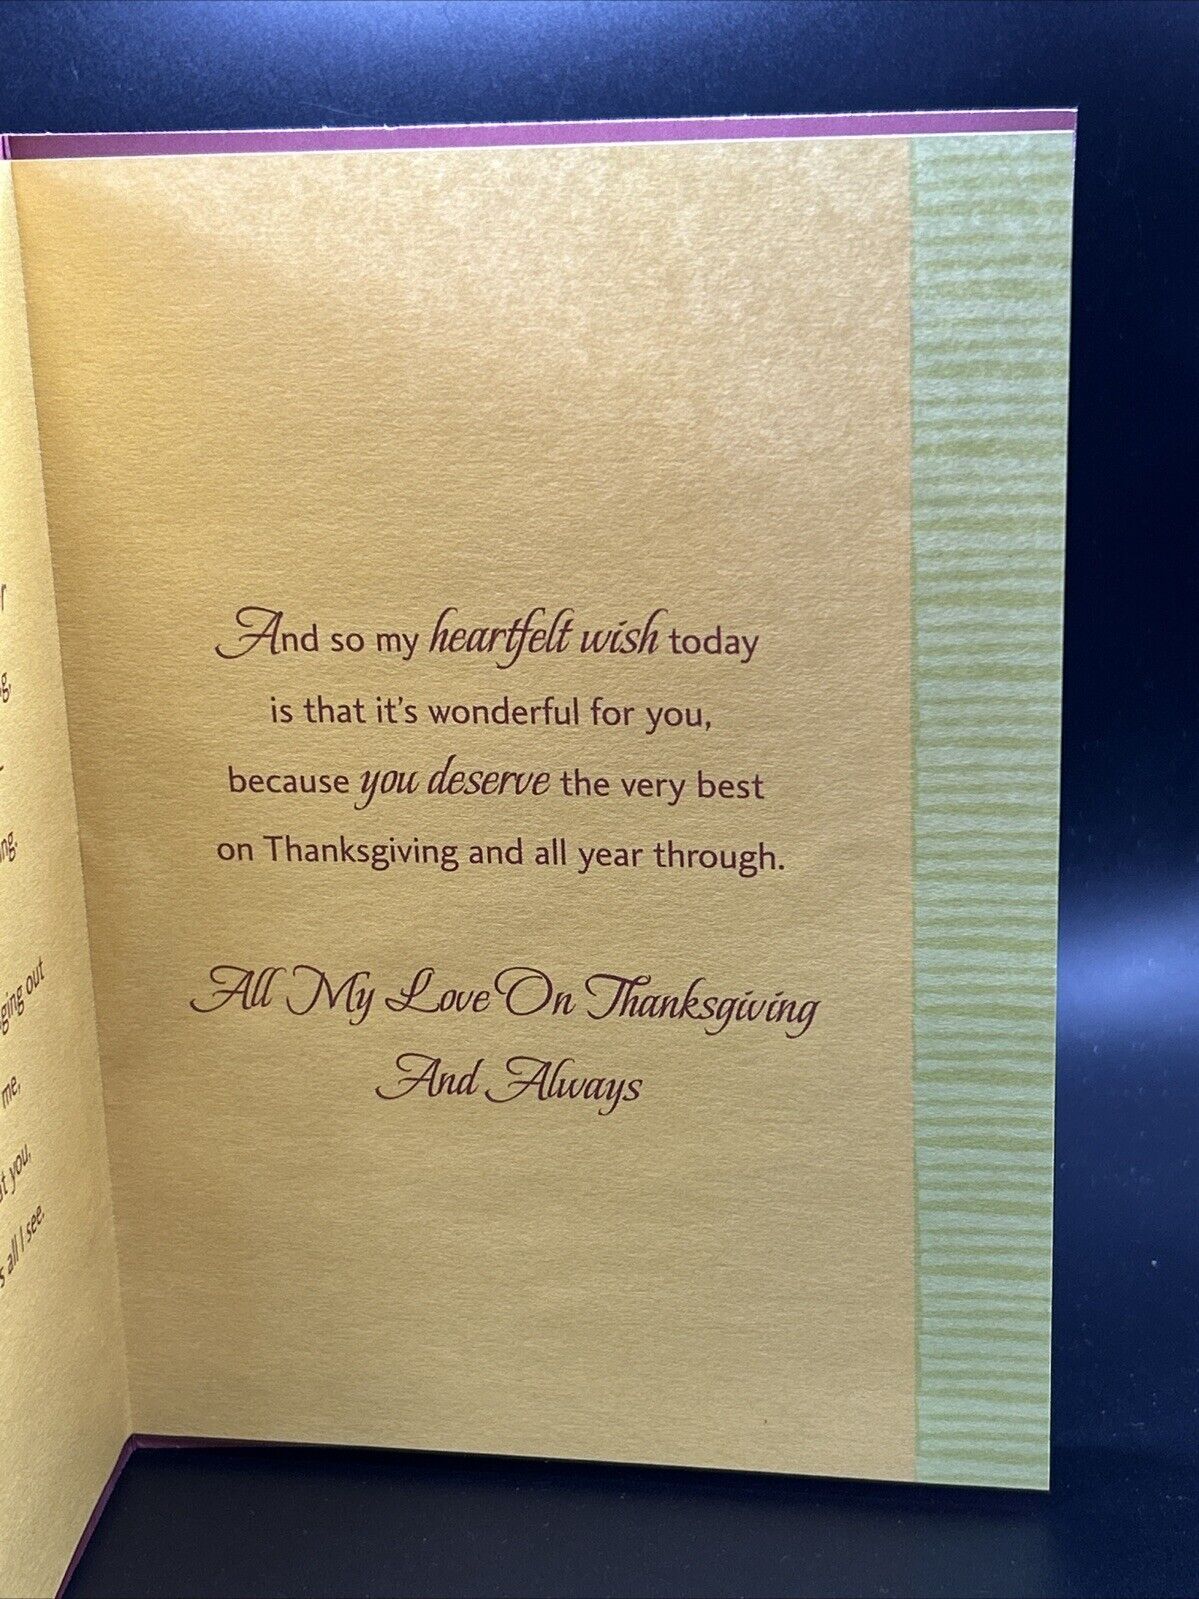 out
me,
you,
all I see.
And so my heartfelt wish today
is that it's wonderful for you,
because you deserve the very best
on Thanksgiving and all year through.
All My Love On Thanksgiving
And Always